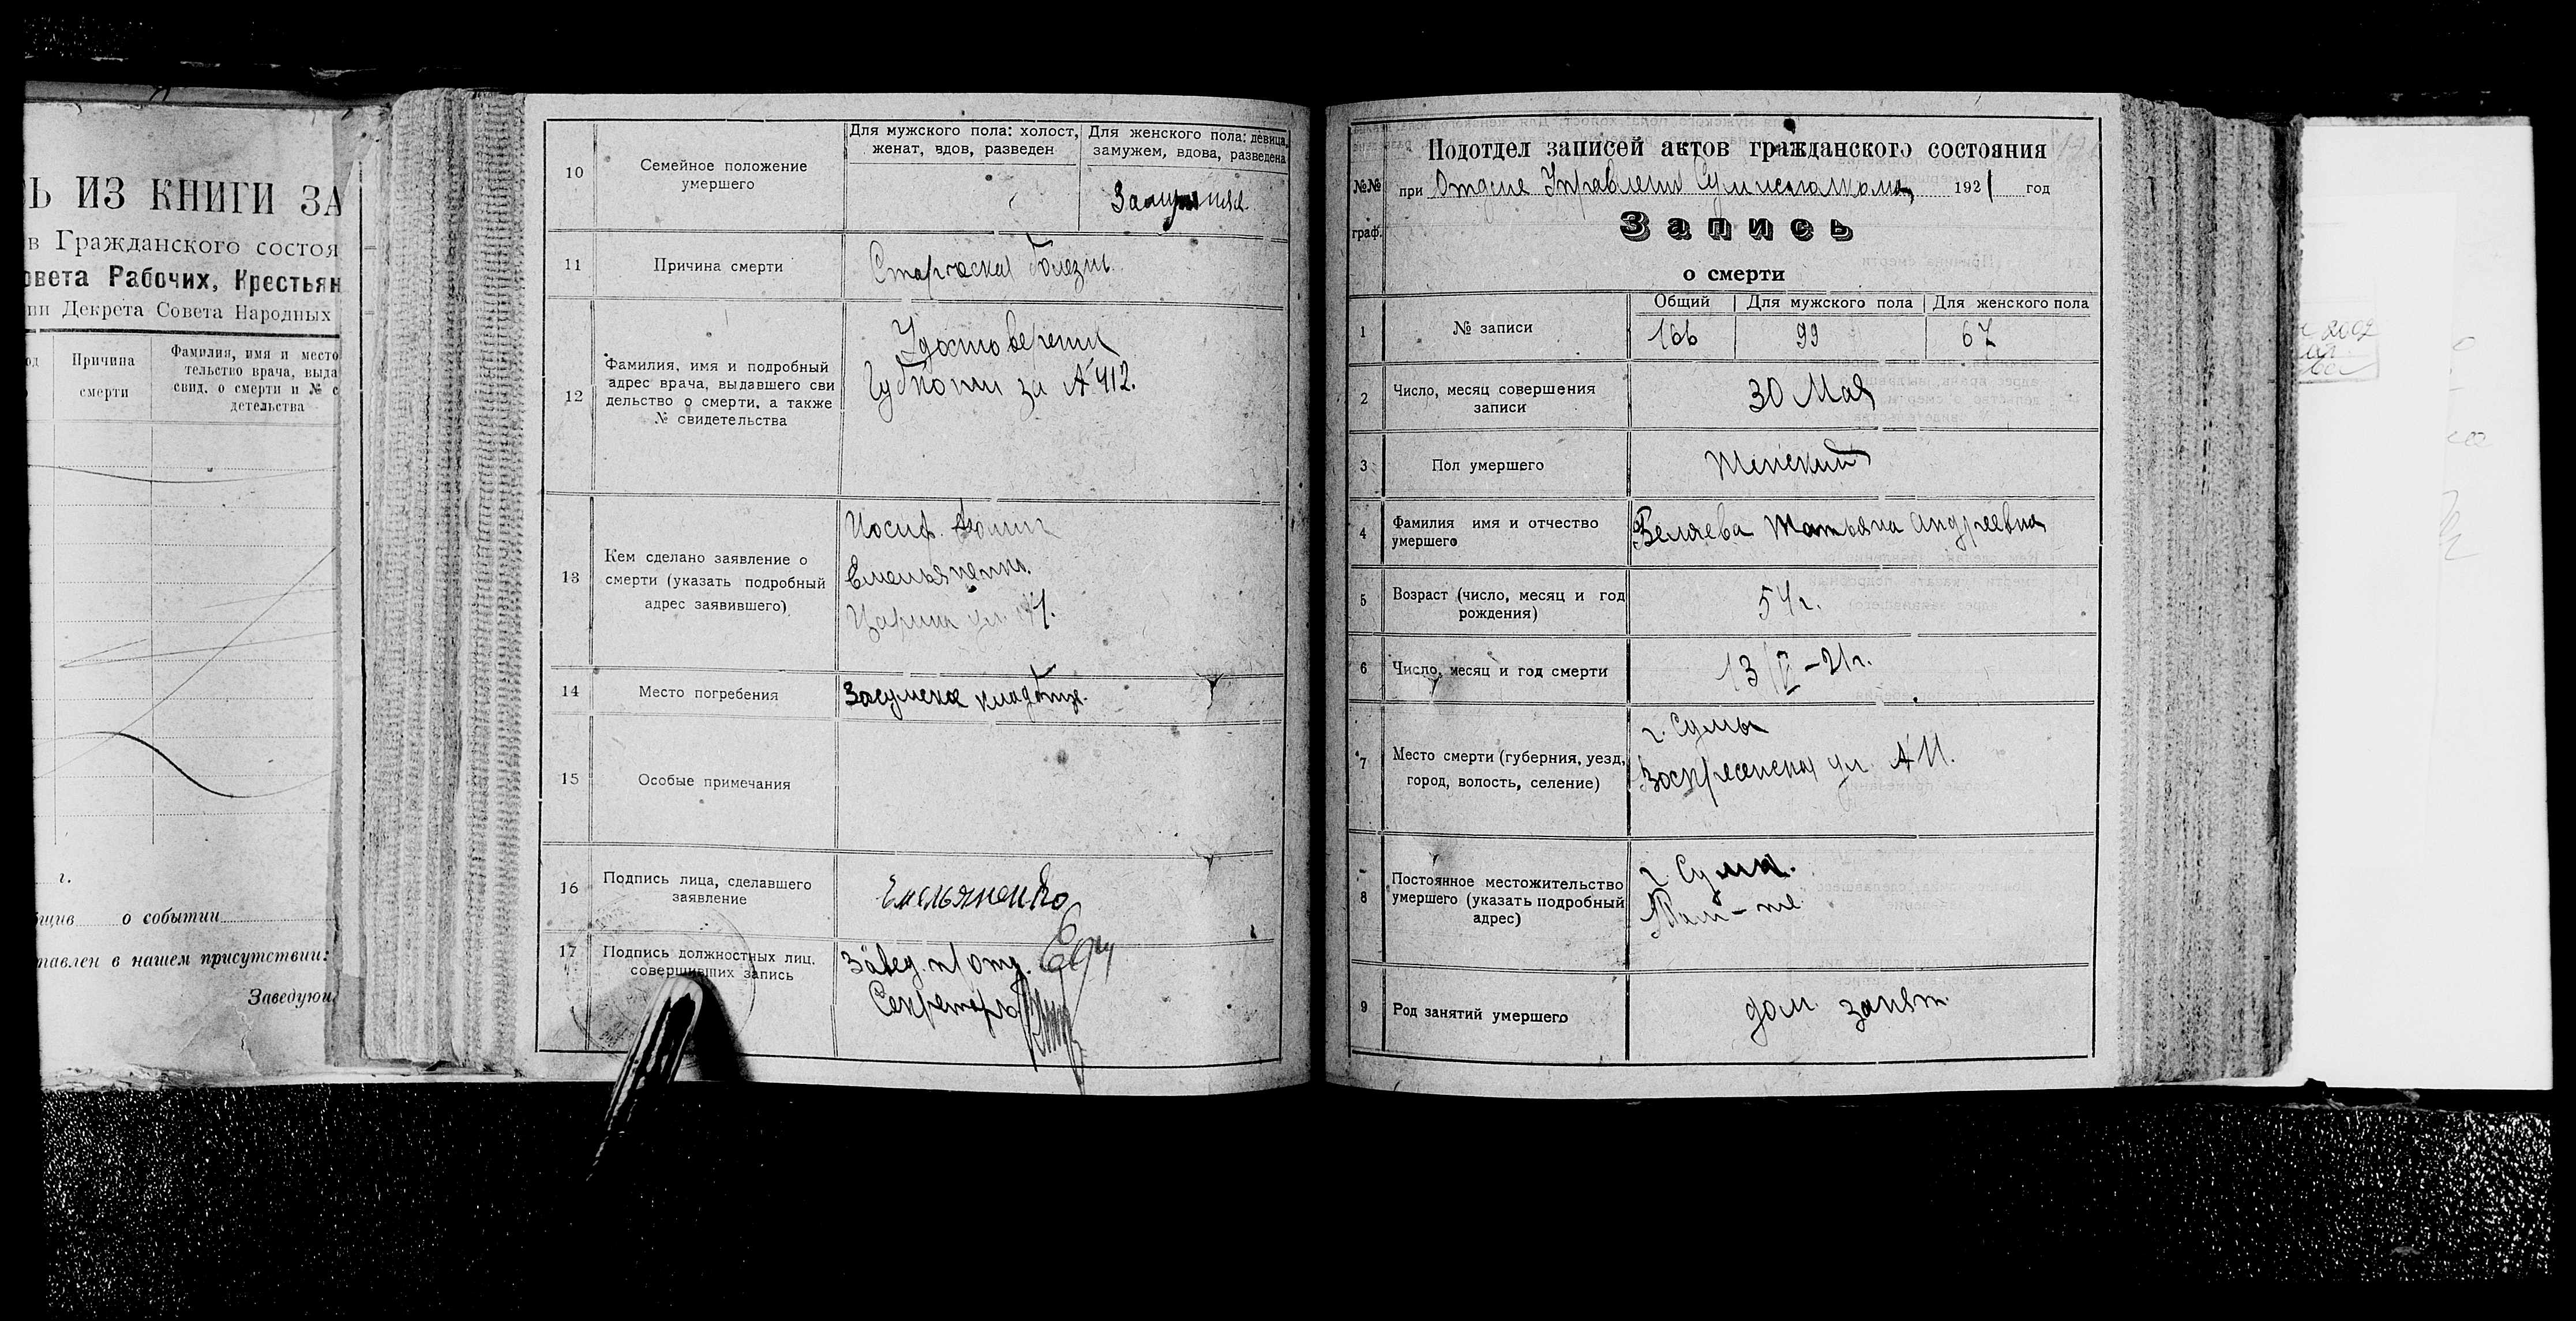 Ь ИЗ КНИГИ ЗА
в Гражданского состоя
овета Рабочих, Крестьян
ии Декрета Совета Народных
Причина
смерти
Фамилия, имя и место
тельство врача, выда
свид. о смерти и № с
детельства
г.
о событии
тавлен в нашем присутствии:
Заведующ
10
Семейное положение
умершего
Для мужского пола: холост,
женат, вдов, разведен
Для женского пола: девица,
замужем, вдова, разведена
11
Причина смерти
Старческая болезнь.
12
Фамилия, имя и подробный
адрес врача, выдавшего сви
дельство о смерти, а также
№ свидетельства
Удостоверения
за № 412.
13
Кем сделано заявление о
смерти (указать подробный
адрес заявившего)
Иосиф
Емельяненко.
ул.
14
Место погребения
Засумское кладбище.
15
Особые примечания
16
Подпись лица, сделавшего
заявление
Емельяненко
17
Подпись должностных лиц,
совершивших запись
Завед. п/отд.
Секретарь
Подотдел записей актов гражданского состояния
№№
граф.
при Отделе Управления 1921 год
Запись
о смерти
1
№ записи
Общий
Для мужского пола
Для женского пола
166
99
67
2
Число, месяц совершения
записи
30 Мая
3
Пол умершего
Женский
4
Фамилия имя и отчество
умершего
Беляева Татьяна Андреевна
5
Возраст (число, месяц и год
рождения)
54 г.
6
Число, месяц и год смерти
13/V - 21 г.
7
Место смерти (губерния, уезд,
город, волость, селение)
г. Сумы
Воскресенская ул. № 11.
8
Постоянное местожительство
умершего (указать подробный
адрес)
г. Сумы.
Там-же
9
Род занятий умершего
дом. занят.
2002